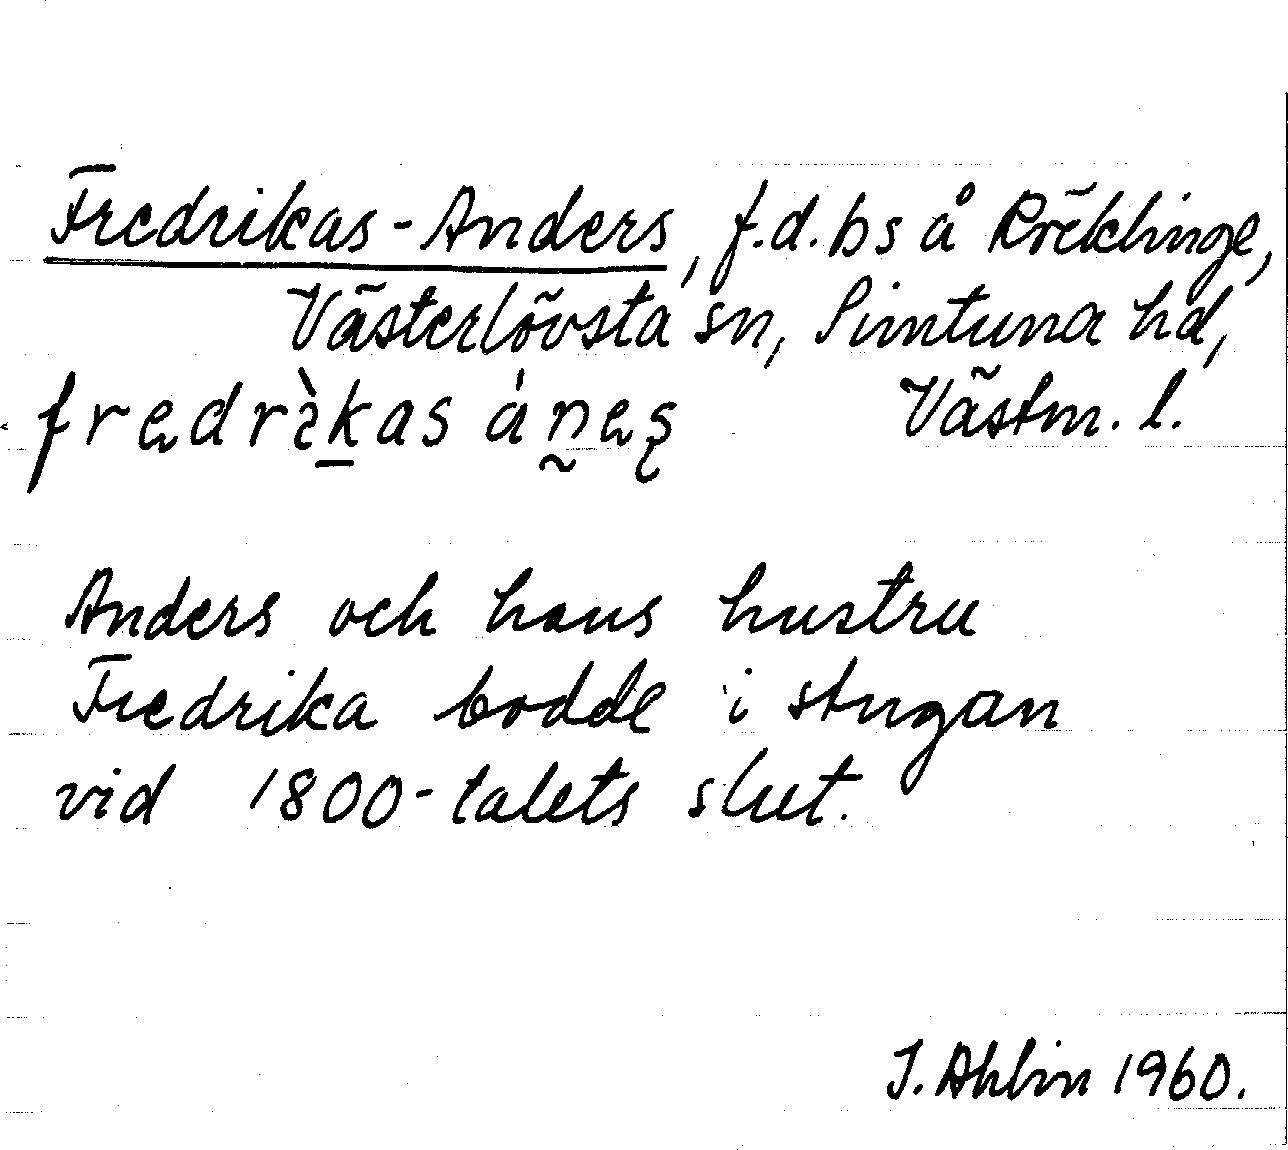 Fredrikas-Anders, f.d. bs å Röcklinge,
Västerlövsta sn, Simtuna hd,
fredrìkas ánes Västm. l.
Anders och hans hustru
Fredrika bodde i stugan
vid 1800-talets slut.
I. Ahlin 1960.